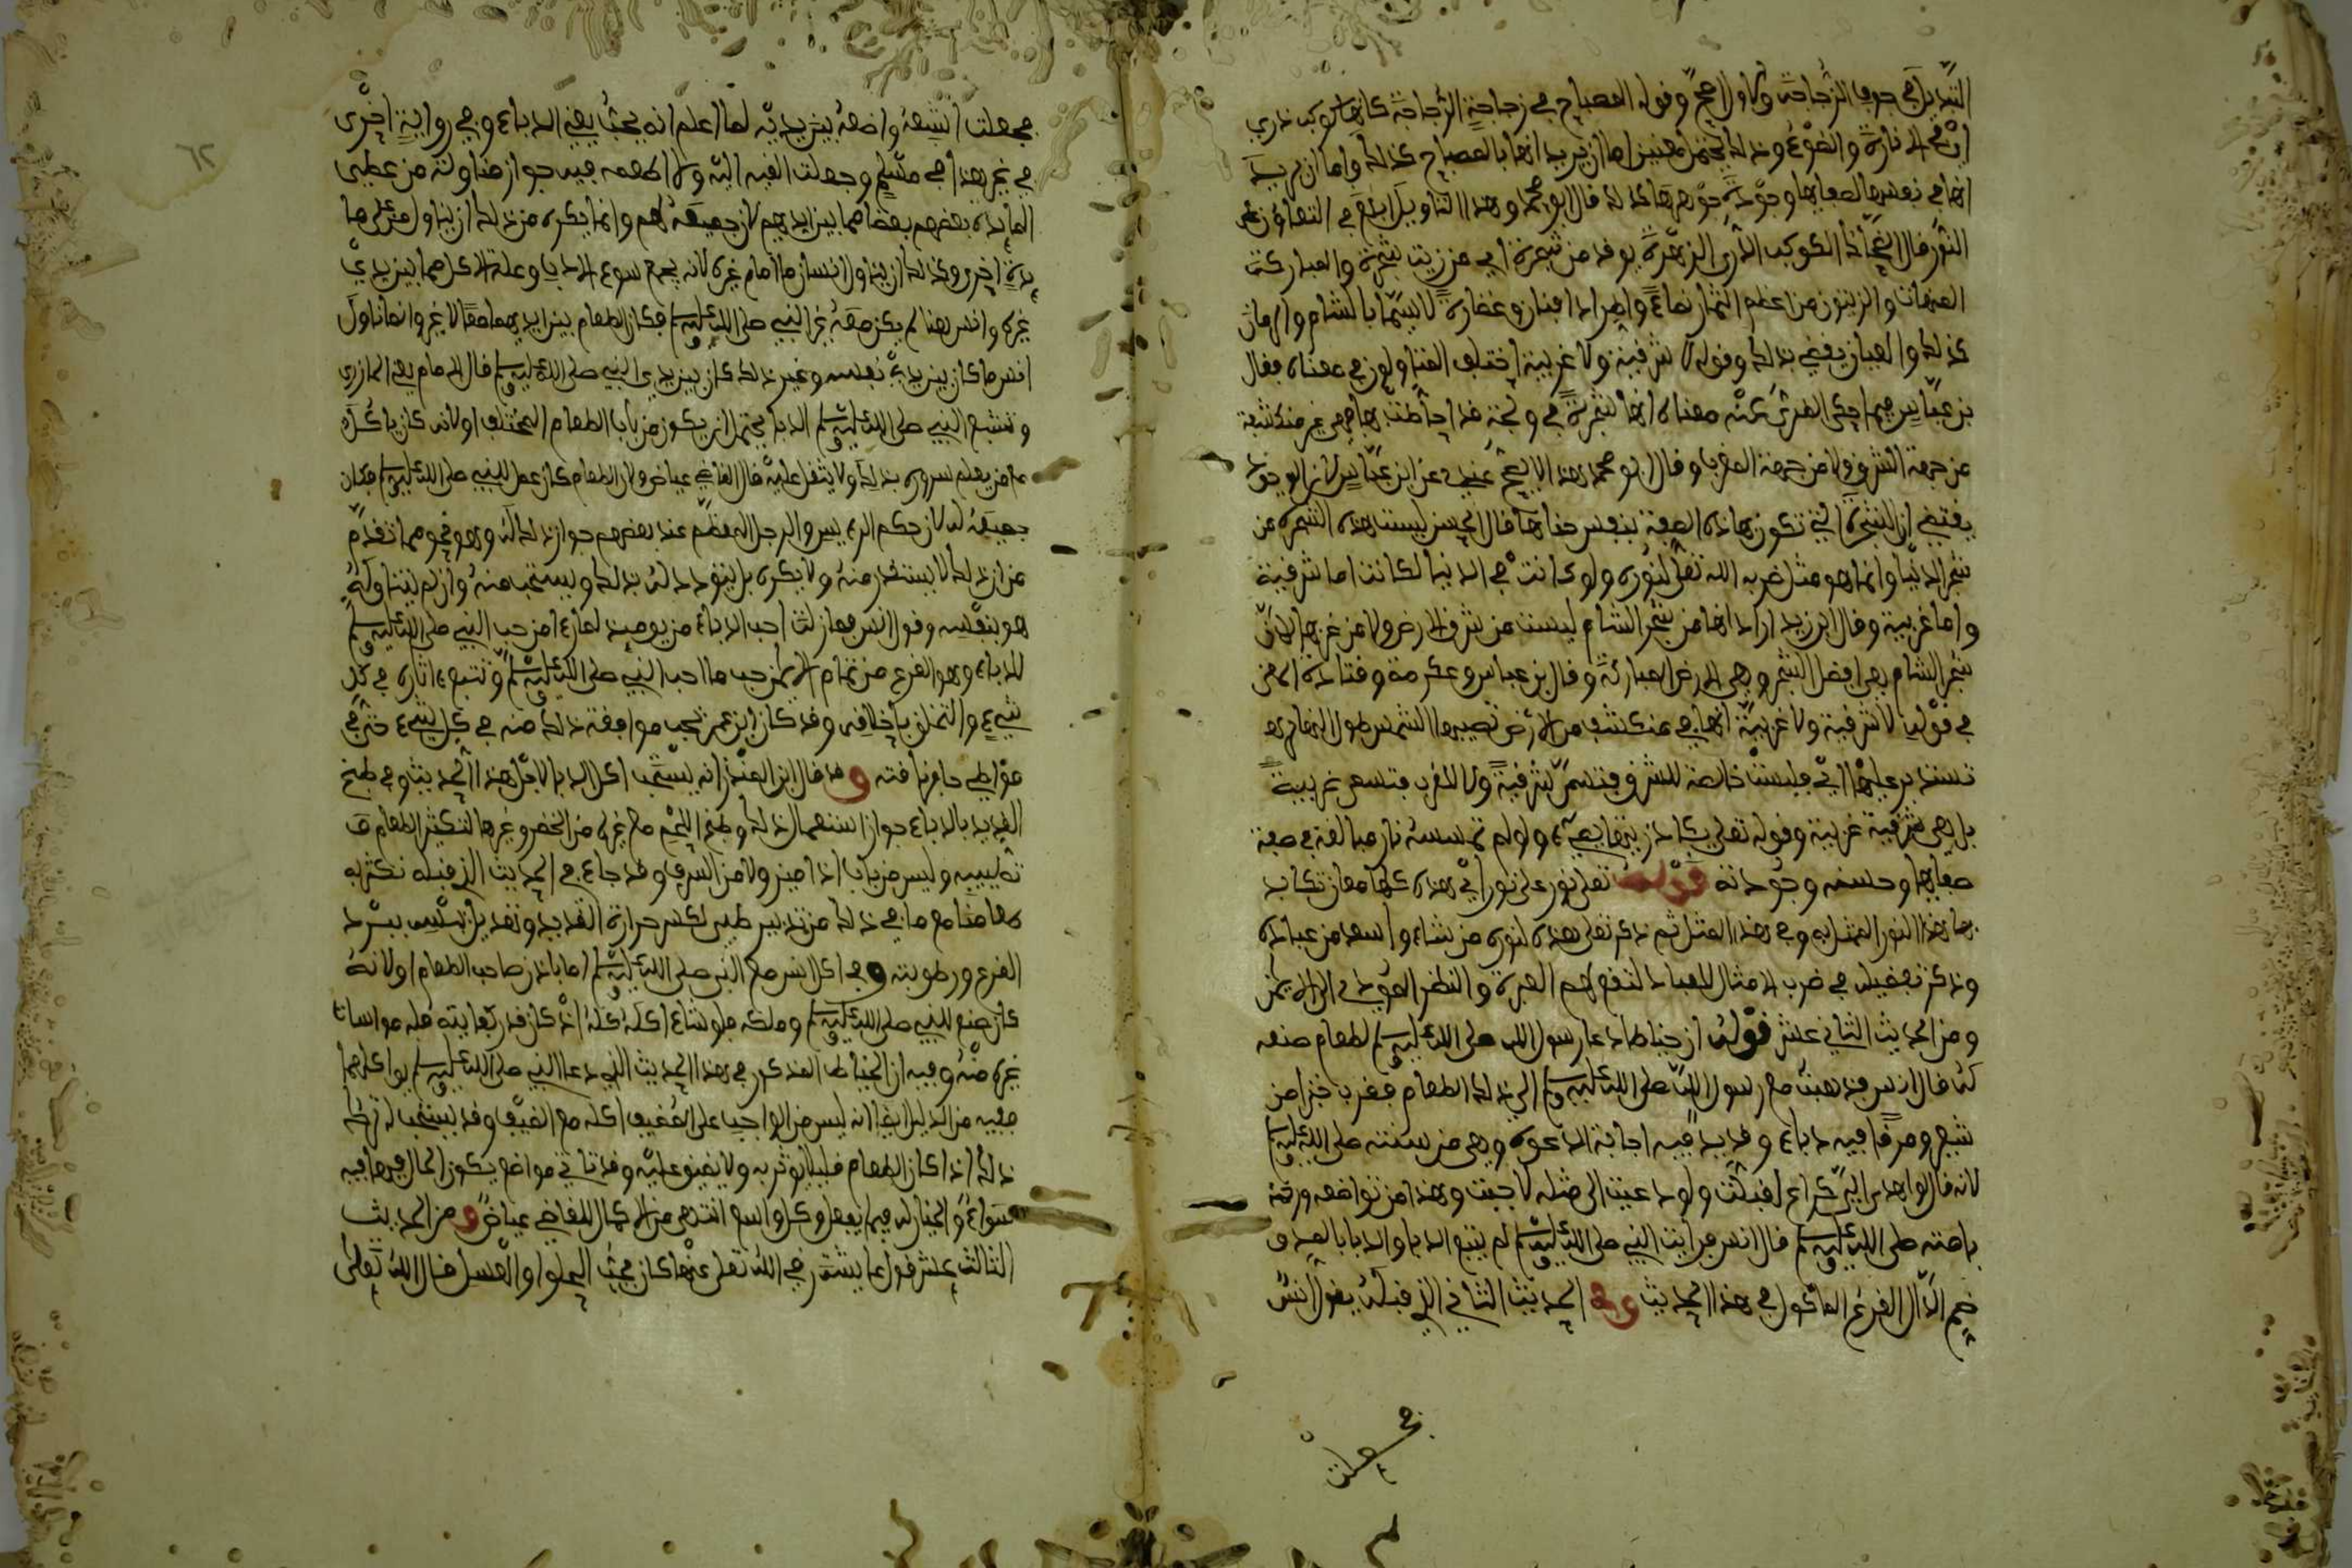 القنديل في جوف الزجاجة والاول اصح وقوله المصباح في زجاجة الزجاجة كانها كوكب دري
اي في الانارة والضوء وذلك يحتمل معنيين اما ان يريد انها بالمصباح كذلك واما ان يريد
انها في نفسها لصفائها وجودة جوهرها كذلك قال ابو محمد وهذا التاويل ابلغ في التعاون على
النور قال الضحاك الكوكب الدري الزهرة يوقد من شجرة اي من زيت شجرة والمباركة
المنماة والزيتون من اعظم الثمار نماء واطراد افنان وغضارة لا سيما بالشام والرمان
كذلك والعيان يقضي بذلك وقوله لا شرقية ولا غربية اختلف المتاولون في معناه فقال
بن عباس فيما حكى الطبري عنه معناه انها شجرة في دوحة قد احاطت بها فهي غير منكشفة
من جهة الشرق ولا من جهة الغرب وقال ابو محمد وهذا لا يصح عندي عن ابن عباس لان الوجود
يقتضي ان الشجرة التي تكون بهاذه الصفة ينفسد جناها قال الحسن ليست هذه الشجرة من
شجر الدنيا وانما هو مثل ضربه الله تعلى لنوره ولو كانت في الدنيا لكانت اما شرقية
واما غربية وقال ابن زيد اراد انها من شجر الشام ليست من شرق الارض ولا من غربها لان
شجر الشام هي افضل الشجر وهي الارض المباركة وقال بن عباس وعكرمة وقتادة المعنى
في قوله لا شرقية ولا غربية انها في منكشف من الارض تصيبها الشمس طول النهار
تستدير عليها اي فليست خالصة للشرق فتسمى شرقية ولا للغرب فتسمى غربية
بل هي شرقية غربية وقوله تعلى يكاد زيتها يضيء ولو لم تمسسه نار مبالغة في صفة
صفايها وحسنه وجودته قوله تعلى نور على نور اي هذه كلها معان تكابد
بها هذا النور الممثل به وفي هذا المثل ثم ذكر تعلى هداه لنوره من شاء واسعد من عباده
وذكر تفضيله في ضرب الامثال للعباد لتقع لهم العبرة والنظر المودي الى الايمان
ومن الحديث الثاني عشر قوله ان خياطا دعا رسول الله صلى الله عليه وسلم لطعام صنعه
له قال انس فذهبت مع رسول الله صلى الله عليه وسلم الى ذلك الطعام فقرب خبزا من
شعير ومرقا فيه دباء وقديد فيه اجابة الدعوة وهي من سنته صلى الله عليه وسلم
لانه قال لو اهدي الي كراع لقبلت ولو دعيت الى مثله لاجبت وهذا من تواضعه ورفقه
بامته صلى الله عليه وسلم قال انس فرايت النبي صلى الله عليه وسلم يتبع الدبا والدبا بالمد و
ضم الدال القرع الماكول في هذا الحديث وفي الحديث الثاني الذي قبله يقول انس
فجعلت
فجعلت اتتبعه واضعه بين يديه لما اعلم انه يحبه يعني الدباء وفي رواية اخرى
في غير هذا في مسلم وجعلت القيه اليه ولا اطعمه فيه جواز مناولة من على
المايدة بعضهم بعضا مما بين ايديهم لان جميعه لهم وانما يكره من ذلك ان يناول من على ما
يدة اخرى وكذلك ان يناول انسان ما امام غيره لانه يجمع سوء الادب وعلة الاكل مما بين يدي
غيره وانس هنا لم يكن معه غير النبي صلى الله عليه وسلم فكان الطعام بين ايديهما معا لا غير وانما ناول
انس ما كان بين يدي نفسه وغير ذلك كان بين يدي النبي صلى الله عليه وسلم قال الامام يعني المازري
وتتبع النبي صلى الله عليه وسلم الدبا يحتمل ان يكون من باب الطعام المختلف او لانه كان ياكله
مع من يعلم سروره بذلك ولا يثقل عليه قال القاضي عياض ولان الطعام كان عمل للنبي صلى الله عليه وسلم فكان
جميعه له لان حكم الرييس والرجل المعظم عند بعضهم جواز ذلك له وهو نحو مما تقدم
من ان ذلك لا يستقذر منه ولا يكره بل يتودد له بذلك ويستحب منه وان لم يتناوله
هو بنفسه وقول انس فما زلت احب الدباء من يوميذ لما راى من حب النبي صلى الله عليه وسلم
للدباء وهو القرع من تمام الايمان حب ما احب النبي صلى الله عليه وسلم وتتبع اثاره في كل
شيء والتخلق باخلاقه وقد كان ابن عمر يحب موافقة ذلك منه في كل شيء حتى في
مواطئ حافر ناقته وقد قال ابن المنذر انه يستحب اكل الدبا لاجل هذا الحديث وفي طبخ
القديد بالدباء جواز استعمال ذلك وطبخ اللحم مع غيره من الخضر وغيرها لتكثير الطعام
تطييبه وليس من باب ادامين ولا من السرف وقد جاء في الحديث الذي قبله نكثر به
طعامنا مع ما في ذلك من تدبير طبي لكسر حرارة القديد وتعديل يبسه ببرد
القرع ورطوبته وفي اكل انس مع النبي صلى الله عليه وسلم اما باذن صاحب الطعام او لانه
كان صنع للنبي صلى الله عليه وسلم وملكه فلو شاء اكله كله اذ كان قدر كفايته فله مواسات
غيره منه وفيه ان الخياط المذكور في هذا الحديث الذي دعا النبي صلى الله عليه وسلم لم يواكلهما
ففيه من الدليل ايضا انه ليس من الواجب على المضيف اكله مع الضيف وقد يستحب له ترك
ذلك اذا كان الطعام قليلا ليوثر به ولا يضيق عليه وقد تاتي مواضع يكون الحال فيها فيه
سواء والخيار له فيما يفعل وكل واسع انتهى من الاكمال للقاضي عياض ومن الحديث
الثالث عشر قول عايشة رضي الله تعلى عنها كان يحب الحلوا والعسل قال الله تعلى
٦٢